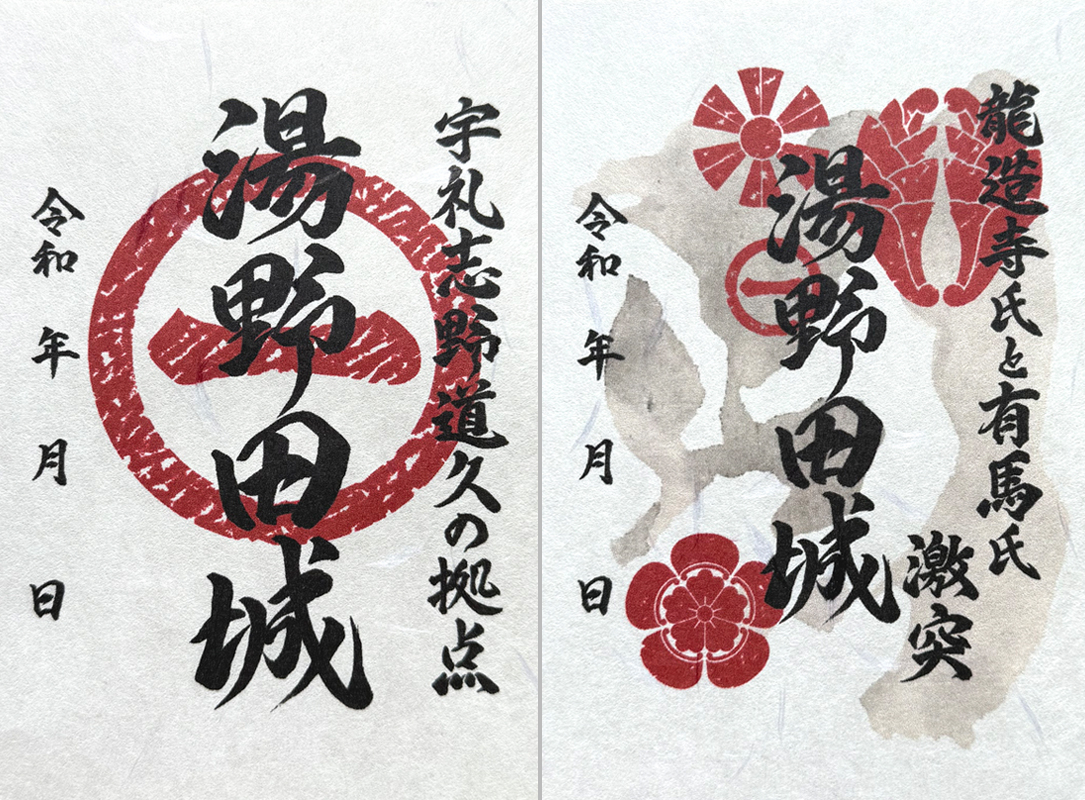 宇礼志野道久の拠点
湯野田城
令和 年 月 日
龍造寺氏と有馬氏
激突
湯野田城
令和 年 月 日